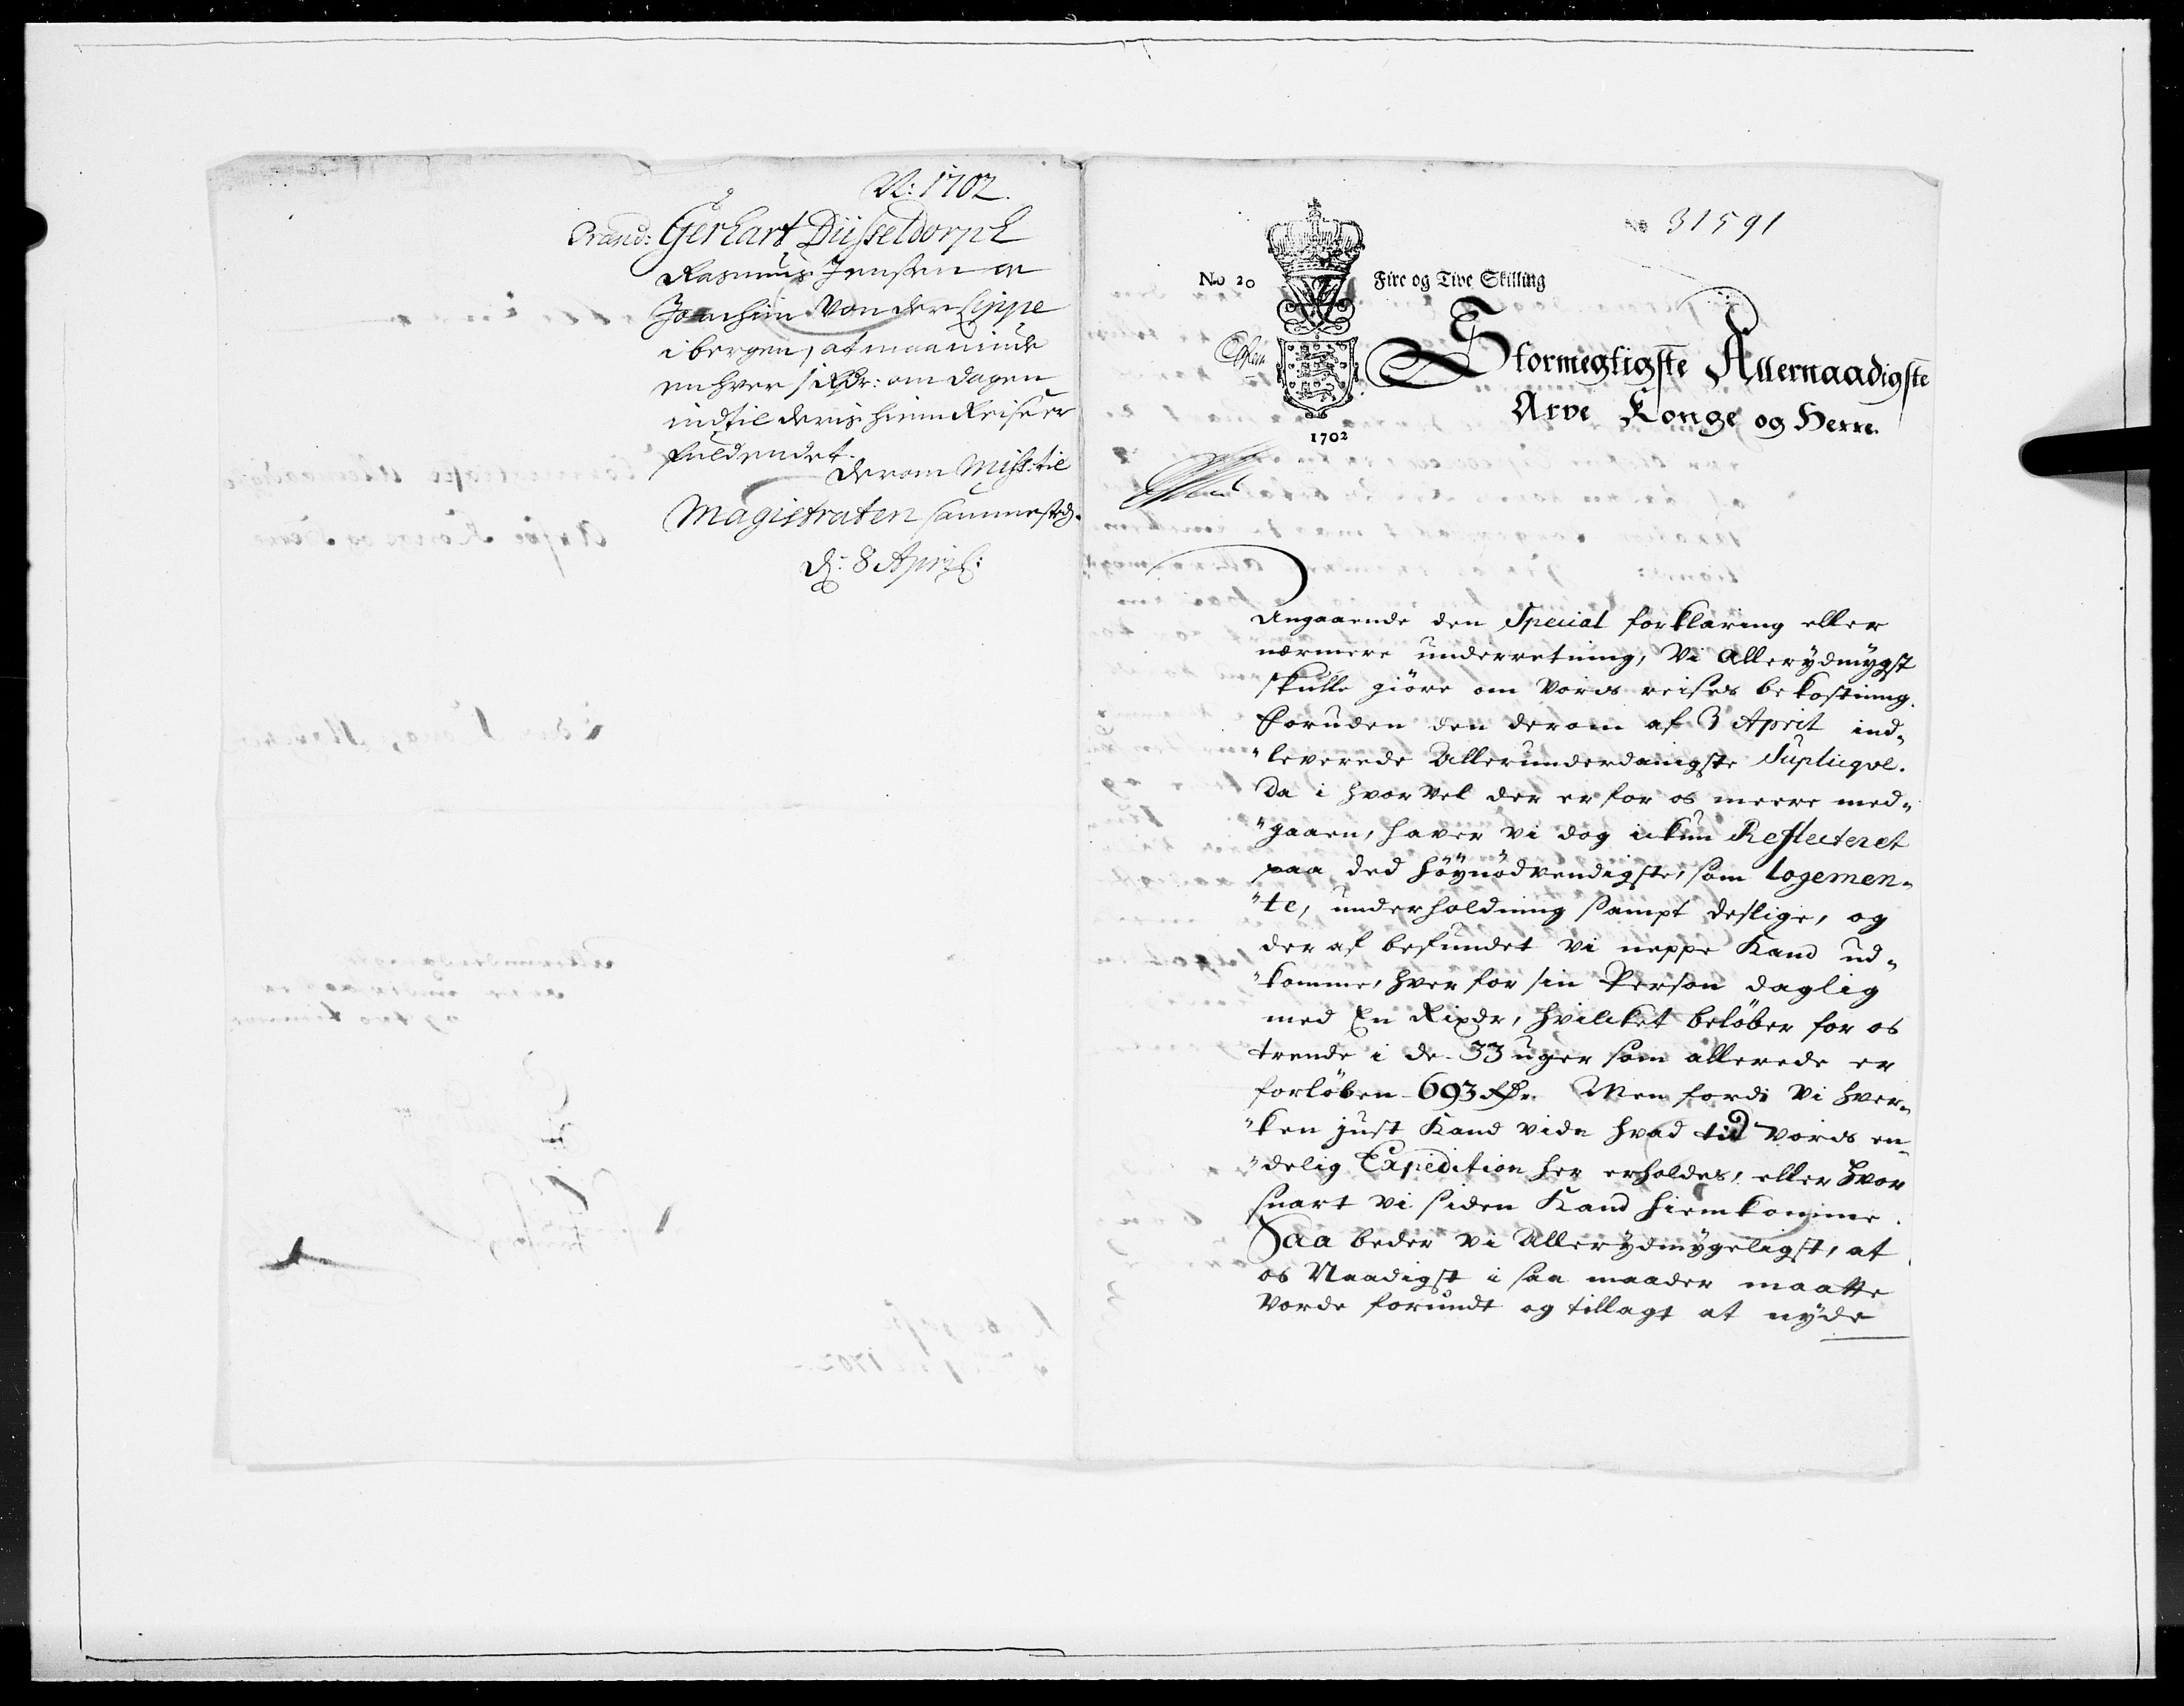 N: 1702.
Gerhart Düsseldorph
Rasmus Jensen oc
Joachim Von der Lippe
i bergen, at maa niude
en hver 1 Rdr: om dagen
indtil deris hiem Reise er
fuldendet.
Derom Miss: til
Magistraten sammested.
d: 8 April:
No 31591
No 20 Fire og Tive Skilling
1702
Stormegtigste Allernaadigste
Arve Konge og Herre.
Angaaende den Special forklaring eller
nermere underretning, Vi Allerydmygst
skulle giöre om Voris reises bekostning.
Foruden den derom af 3 April ind„
„leverede Allerunderdanigste Suplicqve.
Da i hvor vel der er for os meere med„
„gaaen, haver vi dog ickun Reflecteret
paa ded höynödvendigste, som Logemen„
„te, underholdning sampt deslige, og
der af befundet vi neppe Kand ud„
„komme, hver for sin Person daglig
med En Rixdr, hvilcket belöber for os
trende i de 33 uger som allerede er
forlöben 693 Rdr. Men fordi Vi hver„
„ken just Kand vide hvad tid voris en„
„delig Expedition her erholdes, eller hvor
snart vi siden Kand hiemkomme.
Saa beder vi Allerydmygeligst, at
os Naadigst i saa maader maatte
Vorde forundt og tillagt at nyde